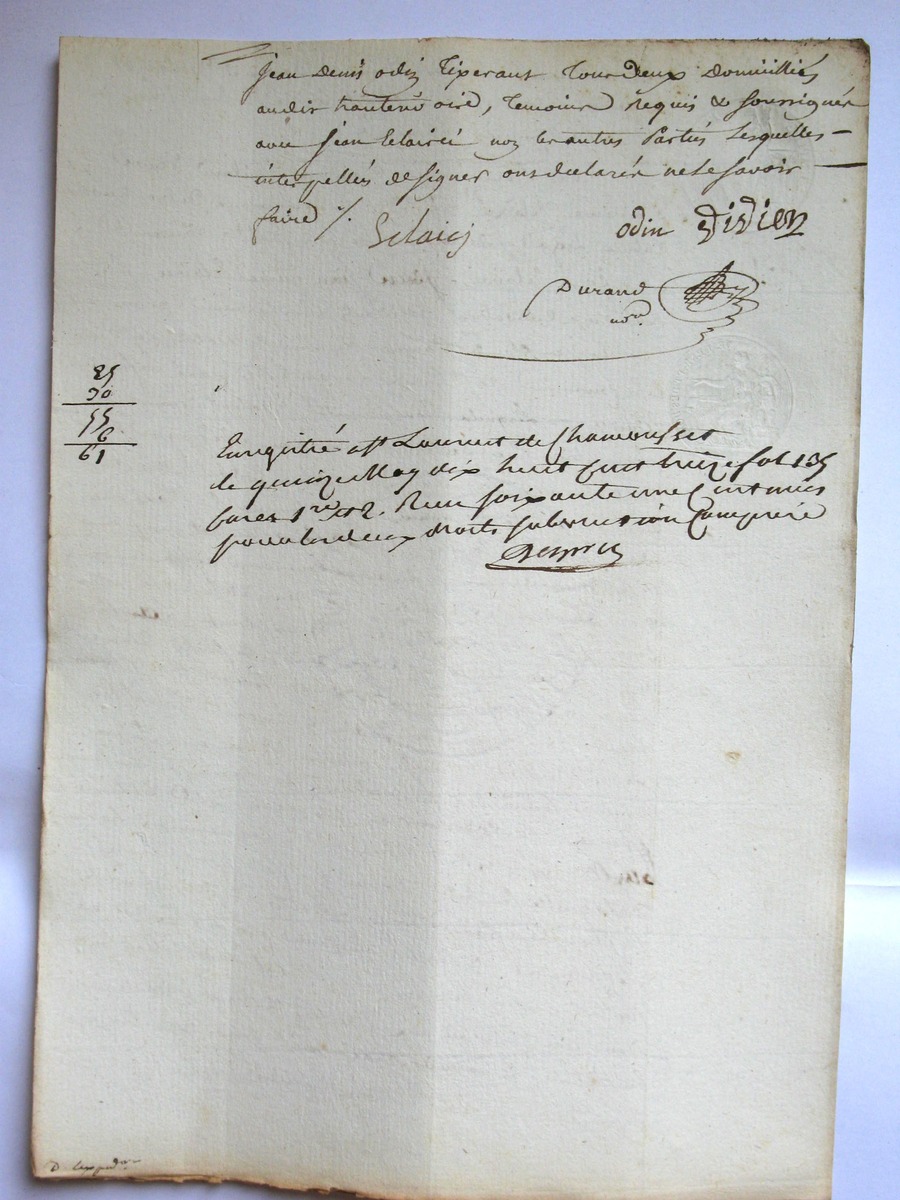 Jean Denis odin Tixerant Tous deux Domiciliés
audit hauterivoire, Temoins Requis & soussignés
avec Jean les autres Parties Lesquelles
interpellés de signer ont declarés ne le savoir
faire ./.
odin Didien
Durand
nore
25
30
55
6
61
Enregistré a St Laurent de Chamousset
le quinze May dix huit cent treize fol 135
cases 1re et 2. Recu soixante une Centimes
pour les deux droits subvention Comprise
D